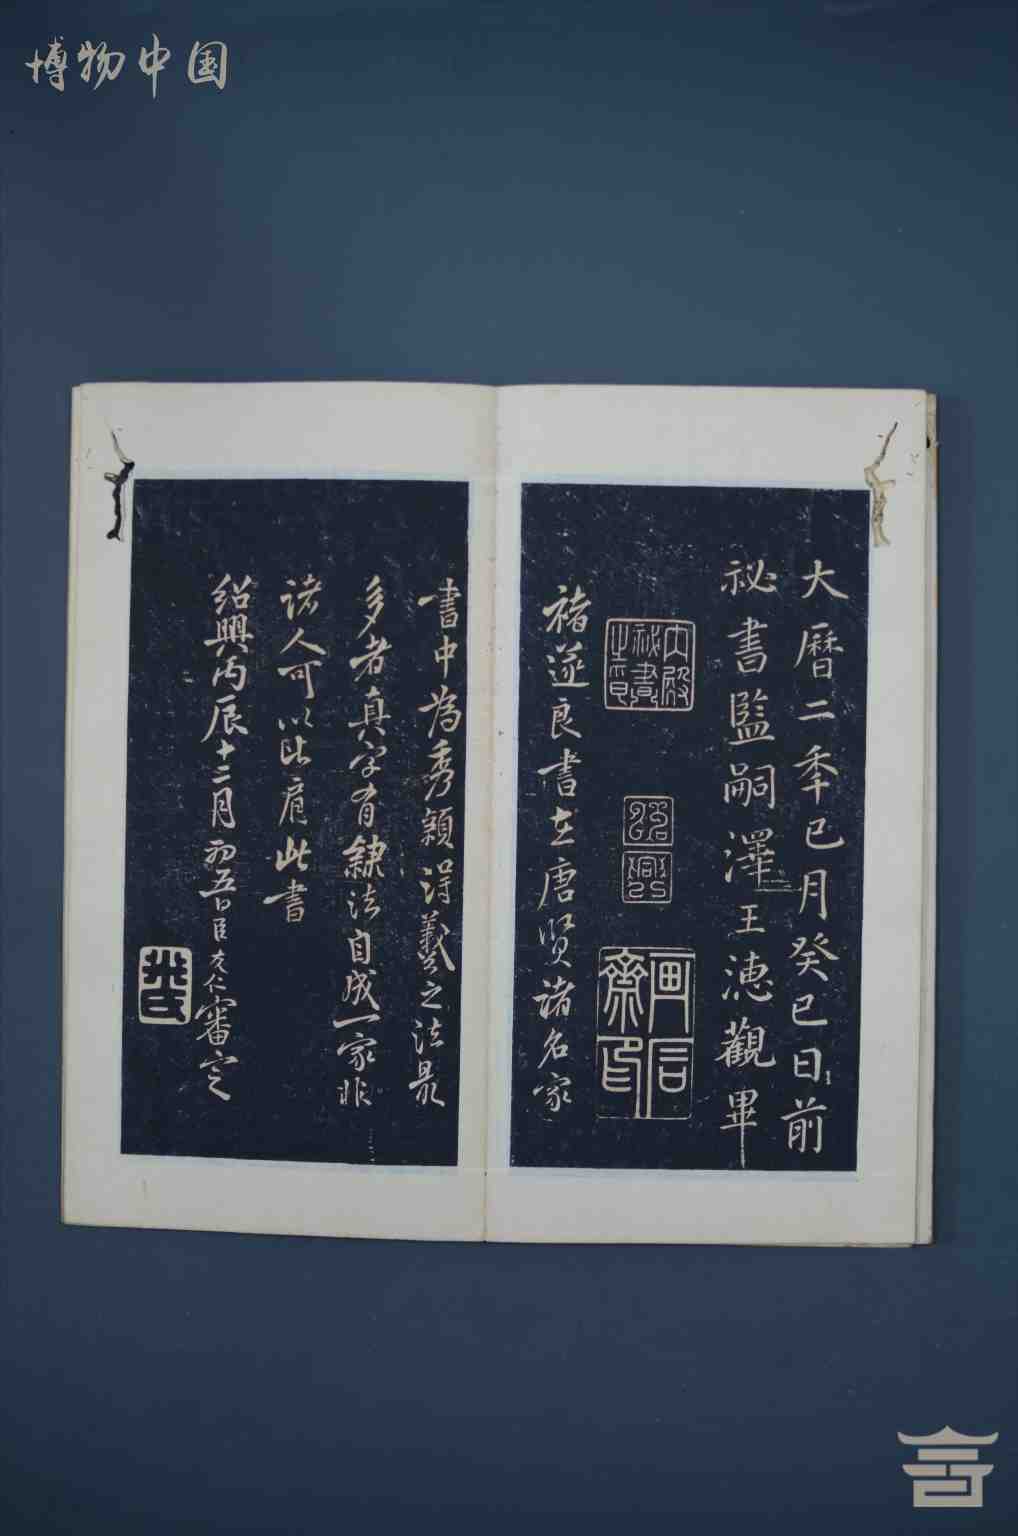 博物中国
大曆二季已月癸巳日前
祕書監嗣澤王潓觀畢
內殿祕書之印
紹興
畫信齋印
褚遂良書在唐賢諸名家
書中為秀穎得羲之法最
多者真字有隸法自成一家非
諸人可以比肩此書
紹興丙辰十二月初五日臣友仁審定
米氏